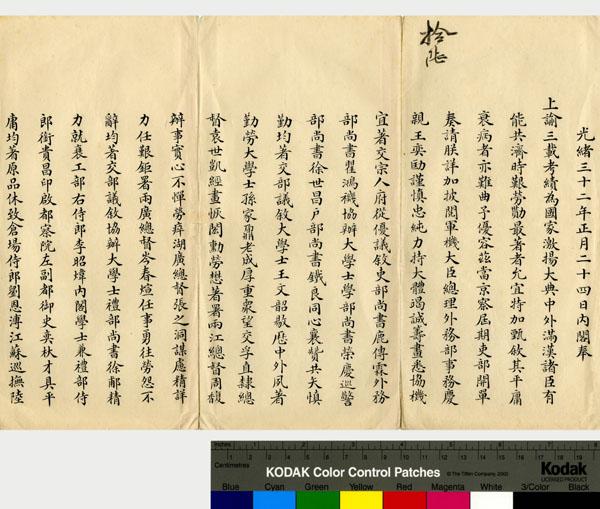 拾陸
光緒三十二年正月二十四日內閣奉
上諭三載考績為國家激揚大典中外滿漢諸臣有
能共濟時艱勞勩最著者允宜特加甄敘其平庸
衰病者亦難曲予優容茲當京察屆期吏部開單
奏請朕詳加披閱軍機大臣總理外務部事務慶
親王奕劻謹慎忠純力持大體竭誠籌畫悉協機
宜著交宗人府從優議敘吏部尚書鹿傳霖外務
部尚書瞿鴻禨協辦大學士學部尚書榮慶巡警
部尚書徐世昌戶部尚書鐵良同心襄贊共矢慎
勤均著交部議敘大學士王文韶敭歷中外夙著
勤勞大學士孫家鼐老成厚重眾望交孚直隸總
督袁世凱經畫恢閎勤勞懋著署兩江總督周馥
辦事實心不憚勞瘁湖廣總督張之洞謀慮精詳
力任艱鉅署兩廣總督岑春煊任事勇往勞怨不
辭均著交部議敘協辦大學士禮部尚書徐郙精
力就衰工部右侍郎李昭煒內閣學士兼禮部侍
郎銜貴昌印啟都察院左副都御史奕杕才具平
庸均著原品休致倉場侍郎劉恩溥江蘇巡撫陸
Inches
Centimetres
KODAK Color Control Patches
© The Tiffen Company, 2000
Kodak
LICENSED PRODUCT
Blue Cyan Green Yellow Red Magenta White 3/Color Black